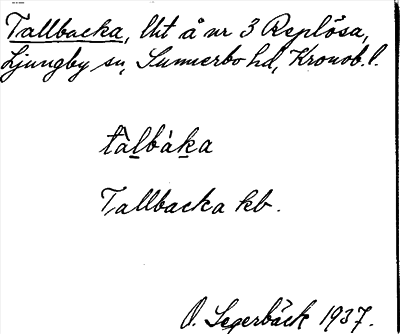 Tallbacka, lht å nr 3 Replösa,
Ljungby sn, Sunnerbo hd, Kronob. l.
tàlbáka
Tallbacka kb.
O. Segerbäck 1937.